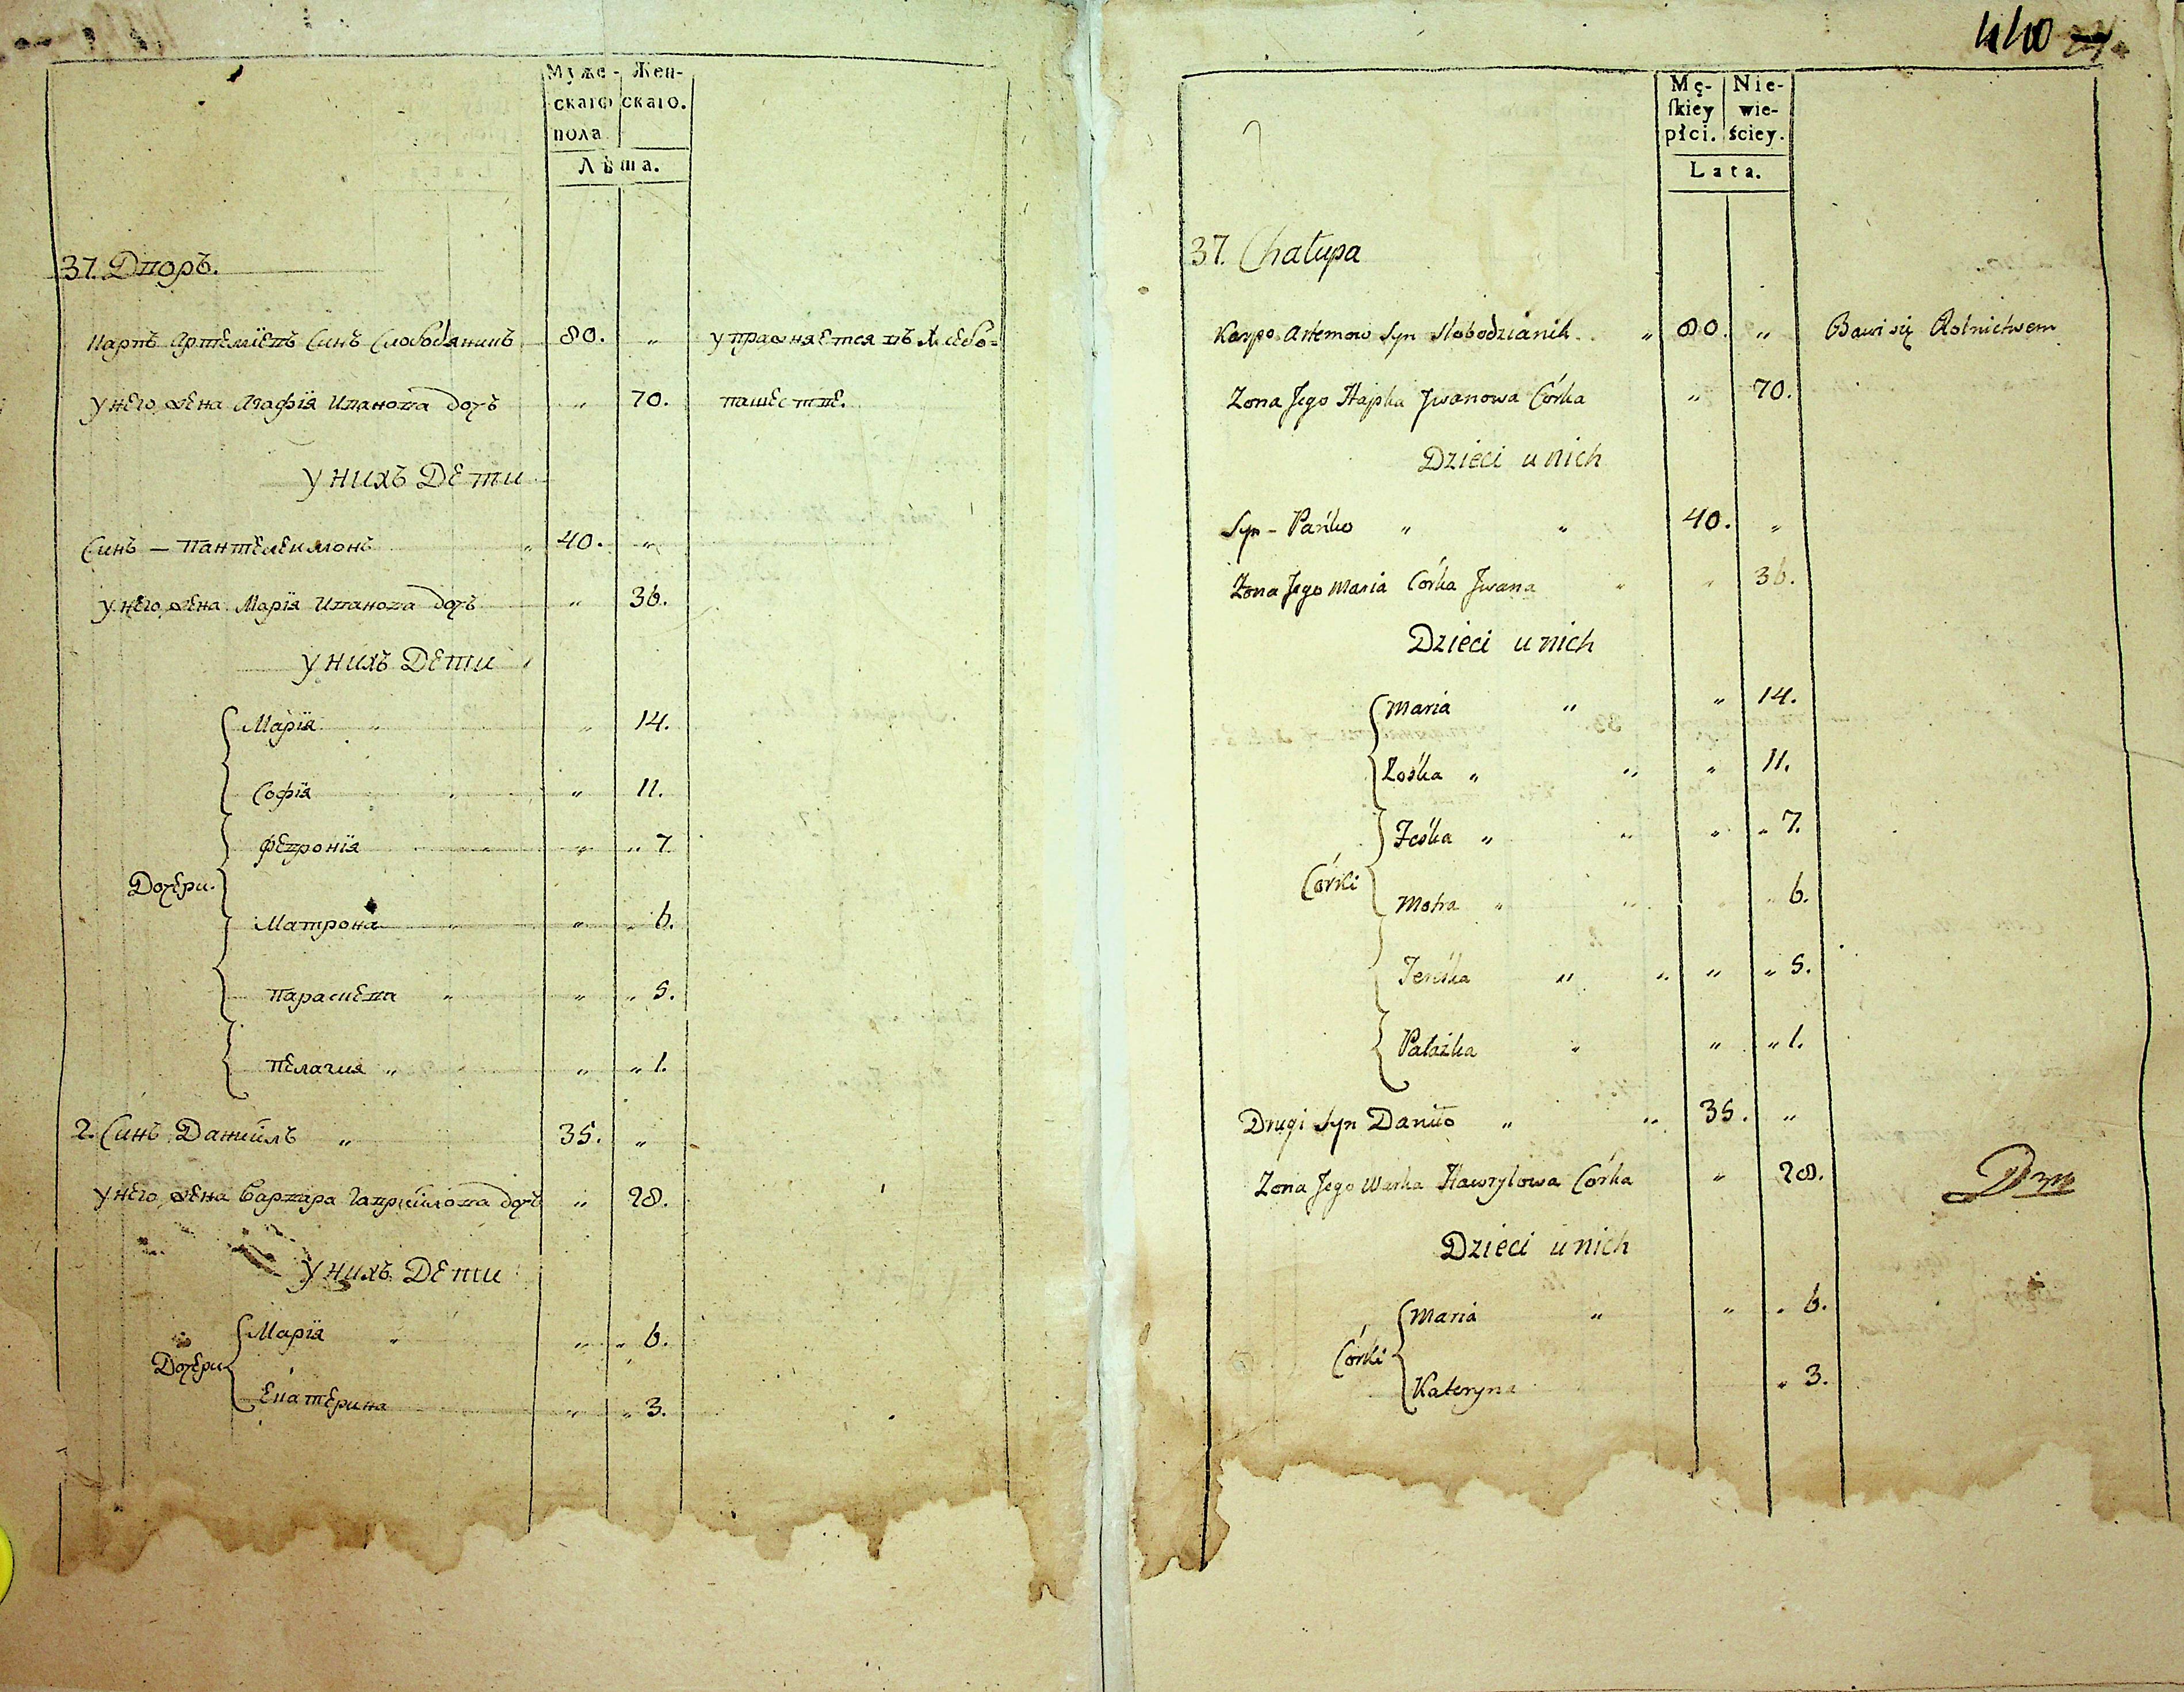 Муже- Жен-
скаго скаго.
пола
Лѣта.
37. Дворъ.
Карпъ Артемiевъ Синъ Слободянинъ 80. „ упражняется въ хлебо=
у него жена Агафiя Иванова дочь „ 70. пашестве.
у нихъ Дети
Синъ — Пантелеимонъ „ 40. „
у него жена Марiя Иванова дочь „ 36.
у нихъ Дети
Марiя „ „ 14.
Софiя „ „ 11.
Февронiя „ „ 7.
Дочери.
Матрона „ „ „ 6.
Параскева „ „ „ 5.
Пелагия „ „ „ 1.
2. Синъ Данiилъ „ 35. „
у него жена Варвара Гаврiилова дочь „ 28.
у нихъ Дети
Марiя „ „ „ 6.
Дочери
Екатерина „ „ 3.
440
Mę- Nie-
ſkiey wie-
płci. ściey.
Lata.
37. Chałupa
Karpo Artemow Syn Słobodzianik „ 80. „ Bawi się Rolnictwem
Zona Jego Hapka Jwanowa Córka „ 70.
Dzieci u nich
Syn - Pańko „ „ 40. „
Zona Jego Maria Córka Jwana „ „ 36.
Dzieci u nich
Maria „ „ 14.
Zośka „ „ „ 11.
Feśka „ „ „ „ 7.
Córki
Motra „ „ „ „ 6.
Jeruśka „ „ „ „ 5.
Pałażka „ „ „ 1.
Drugi Syn Daniło „ „ 35. „
Zona Jego Warka Hawryłowa Córka „ 28.
Dzieci u nich
Maria „ „ „ 6.
Córki
Kateryna „ 3.